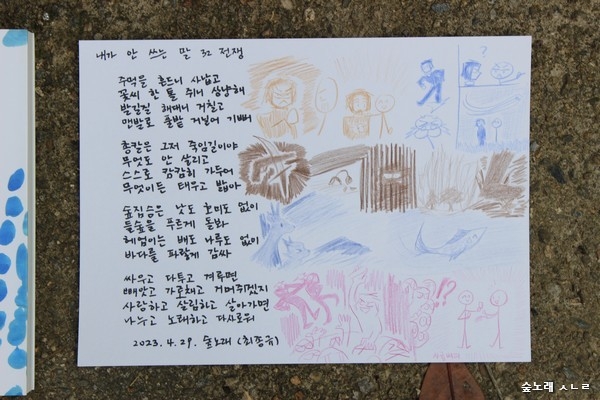 내가 안 쓰는 말 32 전쟁
주먹을 흔드니 사납고
꽃씨 한 톨 쥐니 상냥해
발길질 해대니 거칠고
맨발로 풀밭 거닐어 기뻐
총칼은 그저 죽임길이야
무엇도 안 살리고
스스로 캄캄히 가두어
무엇이든 태우고 밟아
숲짐승은 낫도 호미도 없이
들숲을 푸르게 돌봐
헤엄이는 배도 나루도 없이
바다를 파랗게 감싸
싸우고 다투고 겨루면
빼앗고 가로채고 거머쥐겠지
사랑하고 살림하고 살아가면
나누고 노래하고 다사로워
2023.4.29. 숲노래 (최종규)
?
!?
숲노래 ㅅㄴㄹ